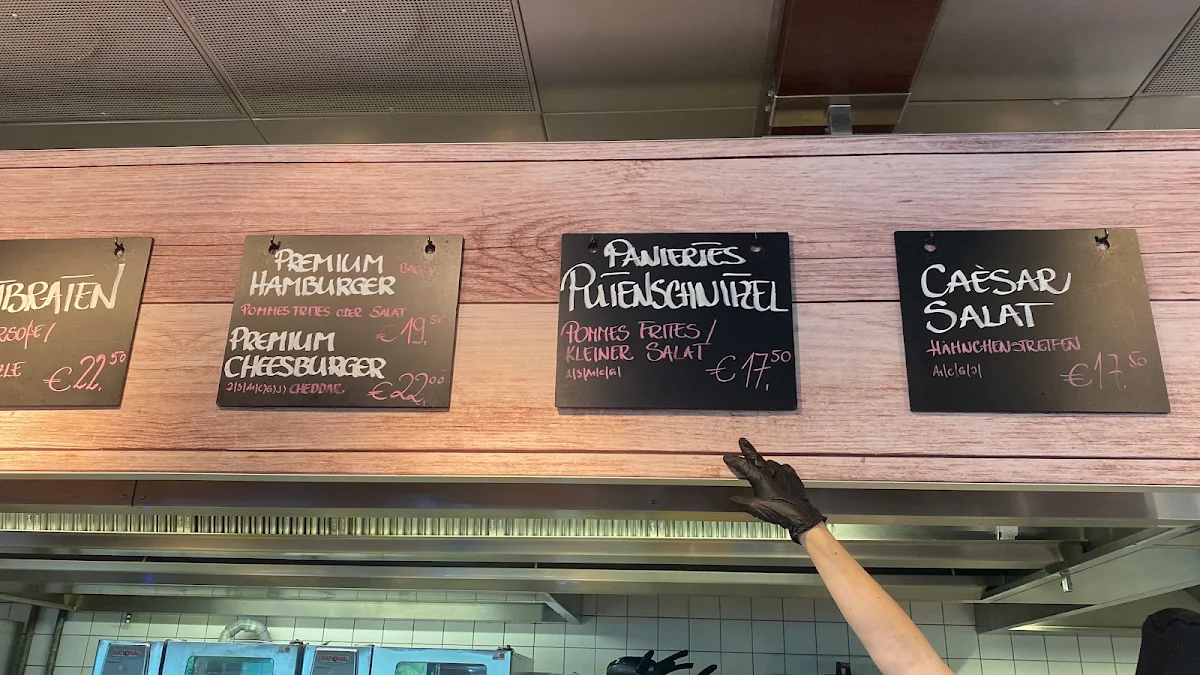 TBRATEN
RSOßE/
LE
€22.50
PREMIUM
HAMBURGER
POMMES FRITES ODER SALAT
€19.50
PREMIUM
CHEESBURGER
2/3/A1/C/G/J/ CHEDDAR
€22.00
PANIERTES
PUTENSCHNITZEL
POMMES FRITES /
KLEINER SALAT
2/3/A1/C/G/
€17.50
CAÈSAR
SALAT
HÄHNCHENSTREIFEN
A1/C/G/J/
€17.50
RATIONAL
RATIONAL